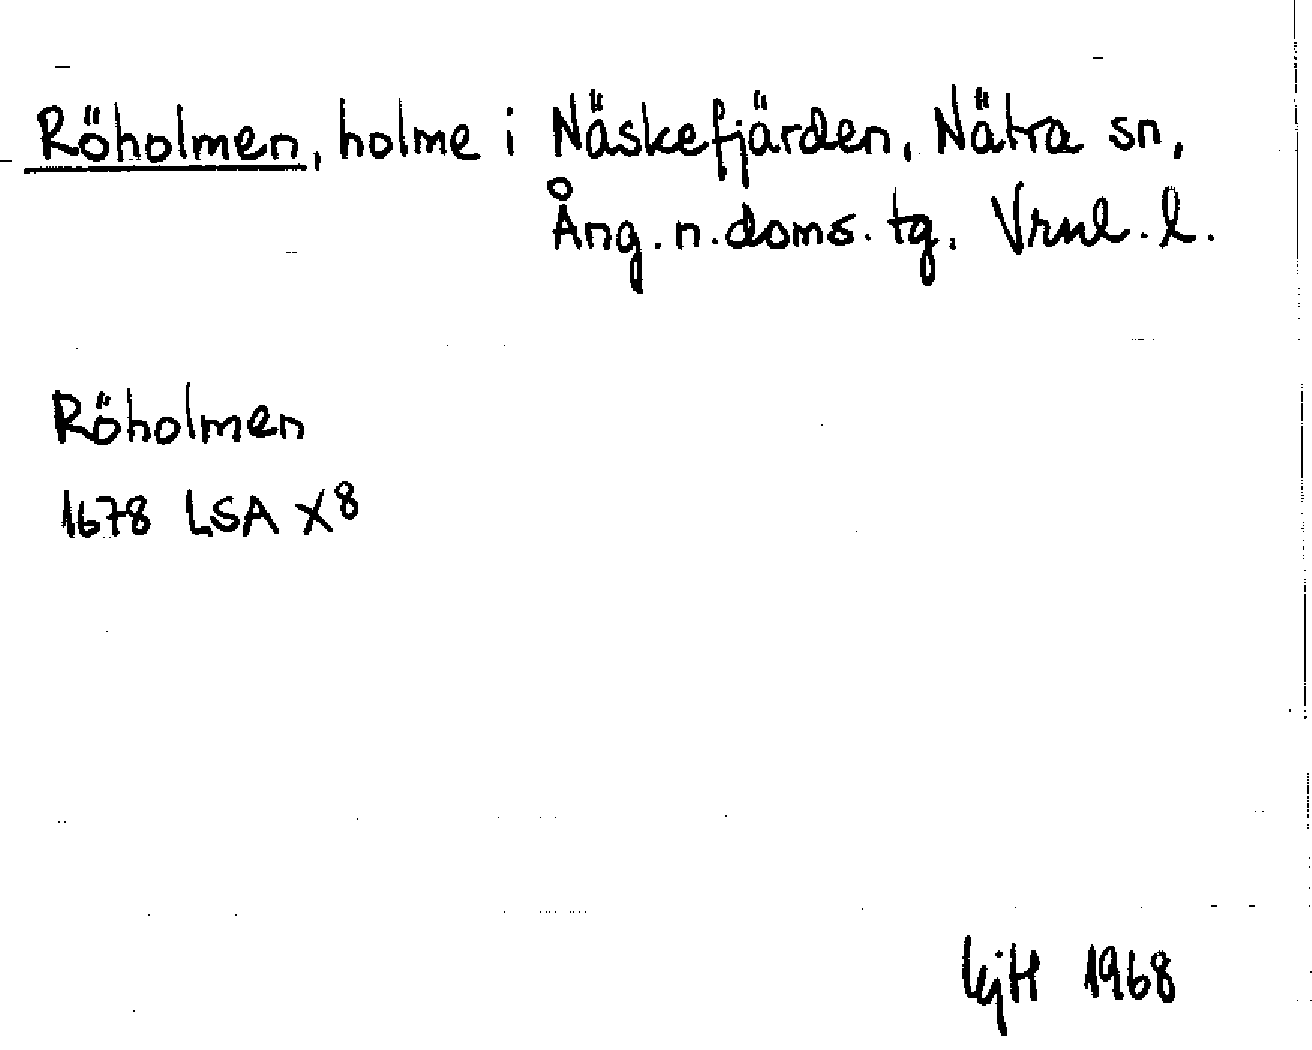 Röholmen, holme i Näskefjärden, Nätra sn,
Ång. n. doms. tg. Vrnl. l.
Röholmen
1678 LSA X8
1968